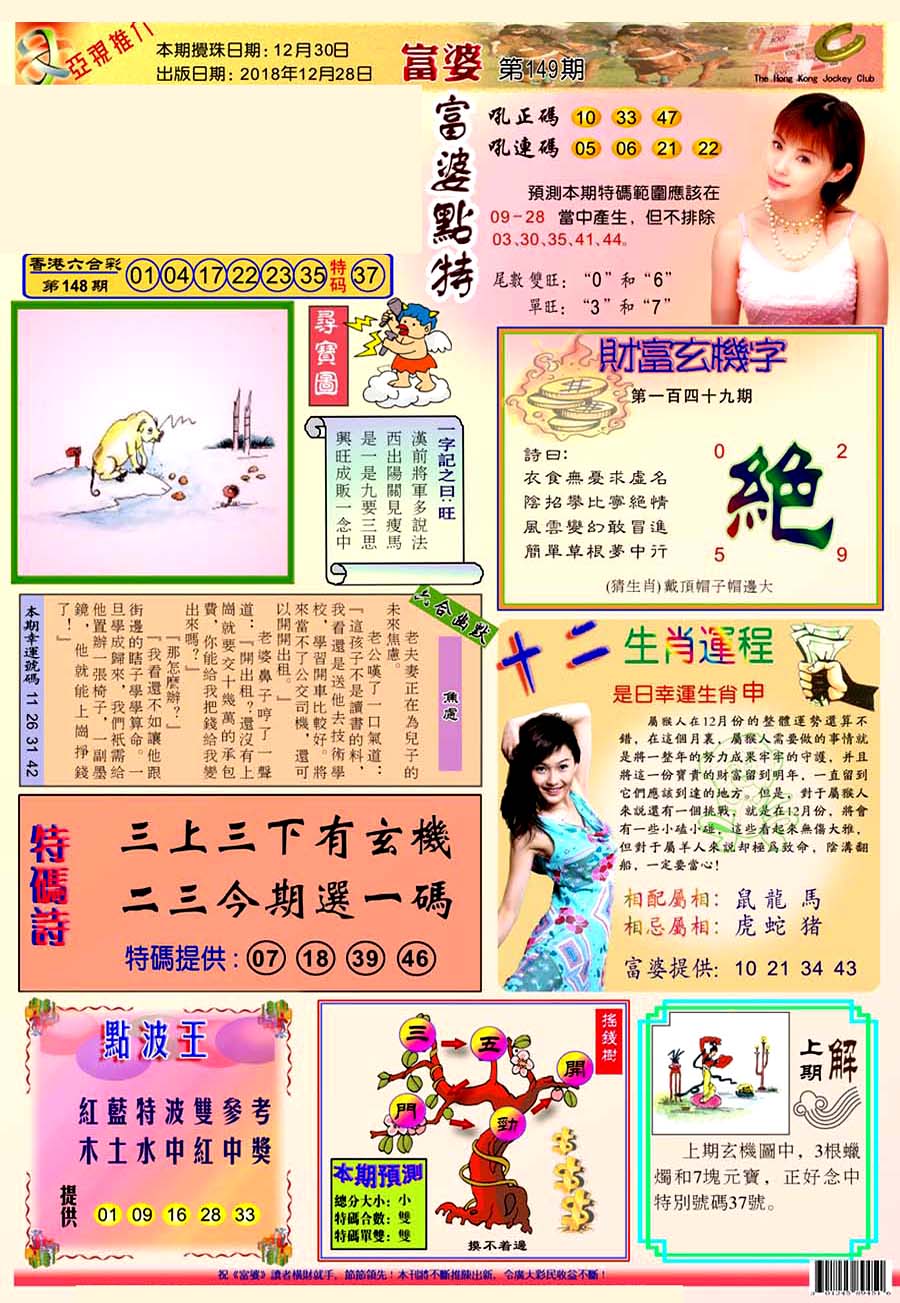 亞視推介
本期攪珠日期:12月30日
出版日期:2018年12月28日
富婆 第149期
The Hong Kong Jockey Club
富婆點特
吼正碼 10 33 47
吼連碼 05 06 21 22
預測本期特碼範圍應該在
09-28 當中產生,但不排除
03、30、35、41、44。
尾數 雙旺:“0”和“6”
單旺:“3”和“7”
香港六合彩
第148期
01 04 17 22 23 35 特码 37
尋寶圖
一字記之曰:旺
漢前將軍多說法
西出陽關見瘦馬
是一是九要三思
興旺成販一念中
財富玄機字
第一百四十九期
詩曰:
衣食無憂求虛名
陰招攀比寧絕情
風雲變幻敢冒進
簡單草根夢中行
0 2
絕
5 9
(猜生肖)戴頂帽子帽邊大
六合幽默
焦慮
老夫妻正在為兒子的
未來焦慮。
老公嘆了一口氣道:
『這孩子不是讀書的料,
我看還是送他去技術學
校,學習開車比較好。將
來當不了公交司機,還可
以開開出租。』
老婆鼻子哼了一聲
道:『開出租?還沒有上
崗就要交十幾萬的承包
費,你能給我把錢給我變
出來嗎?』
『那怎麼辦?』
『我看還不如讓他跟
街邊的瞎子學學算命。一
旦學成歸來,我們祇需給
他置辦一張椅子,一副墨
鏡,他就能上崗掙錢
了!』
本期幸運號碼 11 26 31 42
十二生肖運程
是日幸運生肖 申
屬猴人在12月份的整體運勢還算不
錯,在這個月裏,屬猴人需要做的事情就
是將一整年的努力成果牢牢的守護,并且
將這一份寶貴的財富留到明年,一直留到
它們應該到達的地方。但是,對于屬猴人
來說還有一個挑戰,就是在12月份,將會
有一些小磕小碰,這些看起來無傷大雅,
但對于屬羊人來說却極爲致命,陰溝翻
船,一定要當心!
相配屬相:鼠 龍 馬
相忌屬相:虎 蛇 猪
富婆提供:10 21 34 43
特碼詩
三上三下有玄機
二三今期選一碼
特碼提供:07 18 39 46
點波王
紅藍特波雙參考
木土水中紅中獎
提供 01 09 16 28 33
搖錢樹
三 五 開
門 勁
本期預測
總分大小:小
特碼合數:雙
特碼單雙:雙
摸不着邊
上期 解
上期玄機圖中,3根蠟
燭和7塊元寶,正好念中
特別號碼37號。
祝《富婆》讀者橫財就手,節節領先!本刊將不斷推陳出新,令廣大彩民收益不斷!